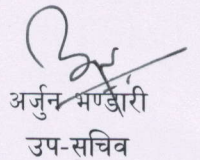 अर्जुन भण्डारी
उप-सचिव